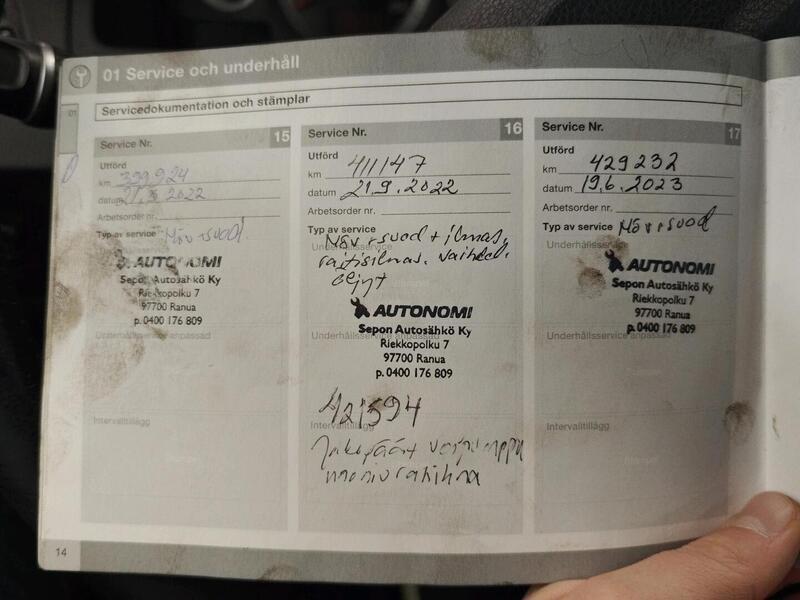 01 Service och underhåll
01
Servicedokumentation och stämplar
Service Nr. 15
Utförd
km 399924
datum 2022
Arbetsorder nr.
Typ av service
AUTONOMI
Sepon Autosähkö Ky
Riekkopolku 7
97700 Ranua
p. 0400 176 809
Underhållsservice anpassad
Intervalltillägg
Service Nr. 16
Utförd
km 411147
datum 21.9.2022
Arbetsorder nr.
Typ av service
Möv.+suod+ilmas,
raitisilmas. vaihdel.
öljyt
AUTONOMI
Sepon Autosähkö Ky
Riekkopolku 7
97700 Ranua
p. 0400 176 809
Underhållsservice anpassad
421594
Intervalltillägg
Jakopään vesipumppu
moniurahihna
Service Nr. 17
Utförd
km 429232
datum 19.6.2023
Arbetsorder nr.
Typ av service Möv+suod
Underhållsservice
AUTONOMI
Sepon Autosähkö Ky
Riekkopolku 7
97700 Ranua
p. 0400 176 809
Underhållsservice anpassad
Intervalltillägg
14